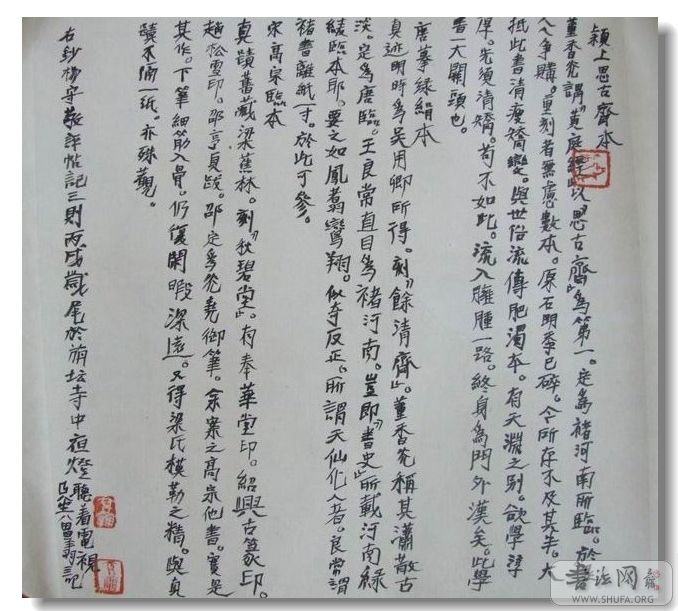 颖上思古齋本
董香光謂“黄庭經以“思古齋”為第一。定為褚河南所臨。於
人争購。重刻者無慮數本。原石明季已碎。今所存不及其半。大
抵此書清瘦矯變。與世俗流傳肥濁本。有天淵之别。欲學淳
厚。先須清矯。苟不如此。流入臃腫一路。終身為門外漢矣。此學
書一大關頭也。
唐摹绿絹本
真迹明時為吴用卿所得。刻“餘清齋”。董香光稱其瀟散古
淡。定為唐臨。王良常直目為褚河南。豈即“書史”所載河南綠
綾臨本耶。要之如鳳翥鸞翔。似奇反正。所謂天仙化人者。良常谓
褚書離紙一寸。於此可參。
宋高宗臨本
真蹟舊藏梁蕉林。刻“秋碧堂”。有奉華堂印。紹興古篆印。
趙松雪印。邵亨貞跋。邵定為光堯御筆。余案之高宗他書。實是
其作。下筆細筋入骨。仍復閑暇深遠。又得梁氏模勒之精。與真
蹟不隔一紙。亦殊觀。
右鈔楊守敬評帖記三則丙戌歲尾於 坛寺中夜燈聽着電視
八 翁記
書法网
WWW.SHUFA.ORG